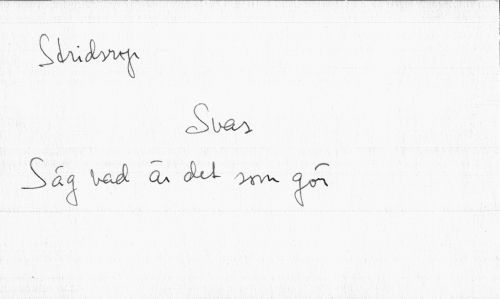 Stridsrop
Svar
Säg vad är det som gör